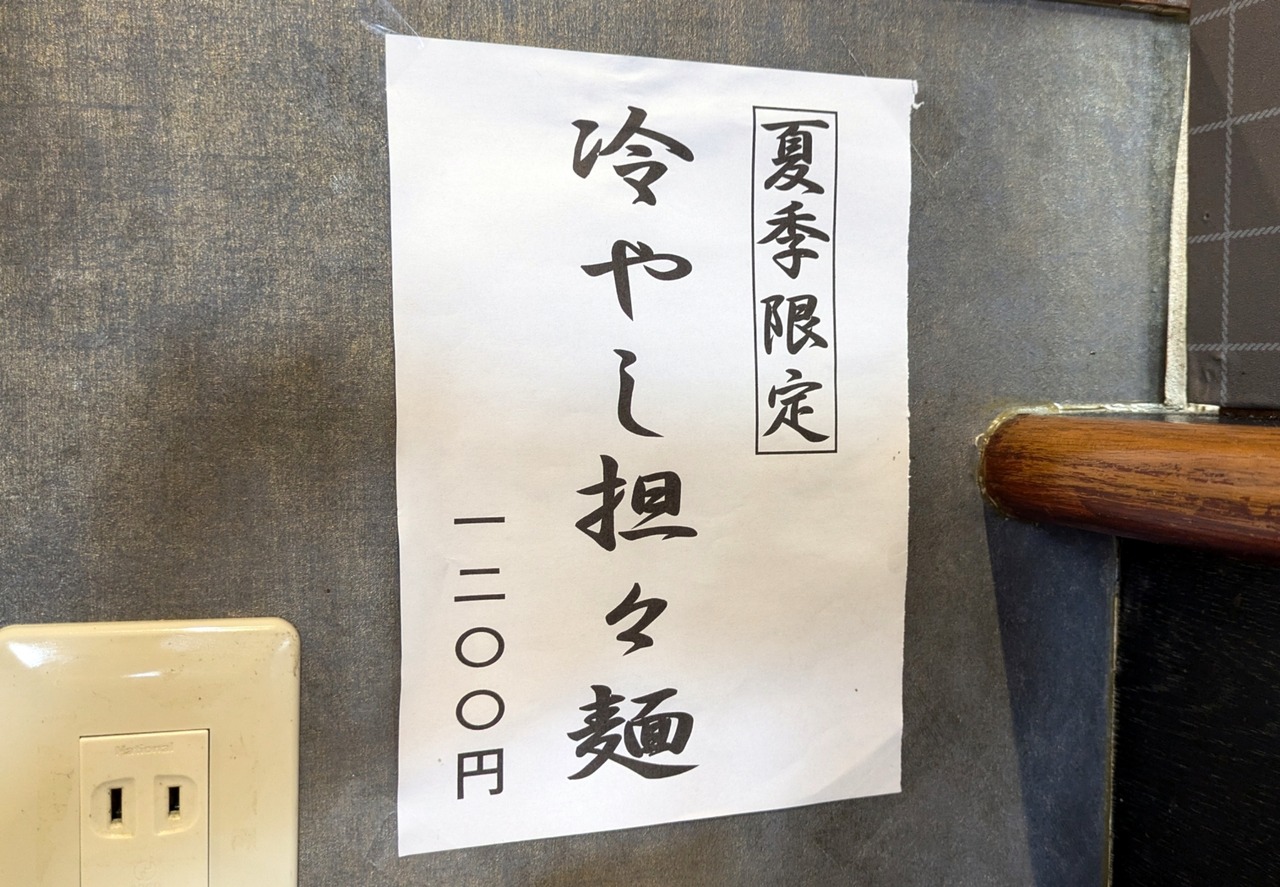 夏季限定
冷やし担々麺
一二〇〇円
National